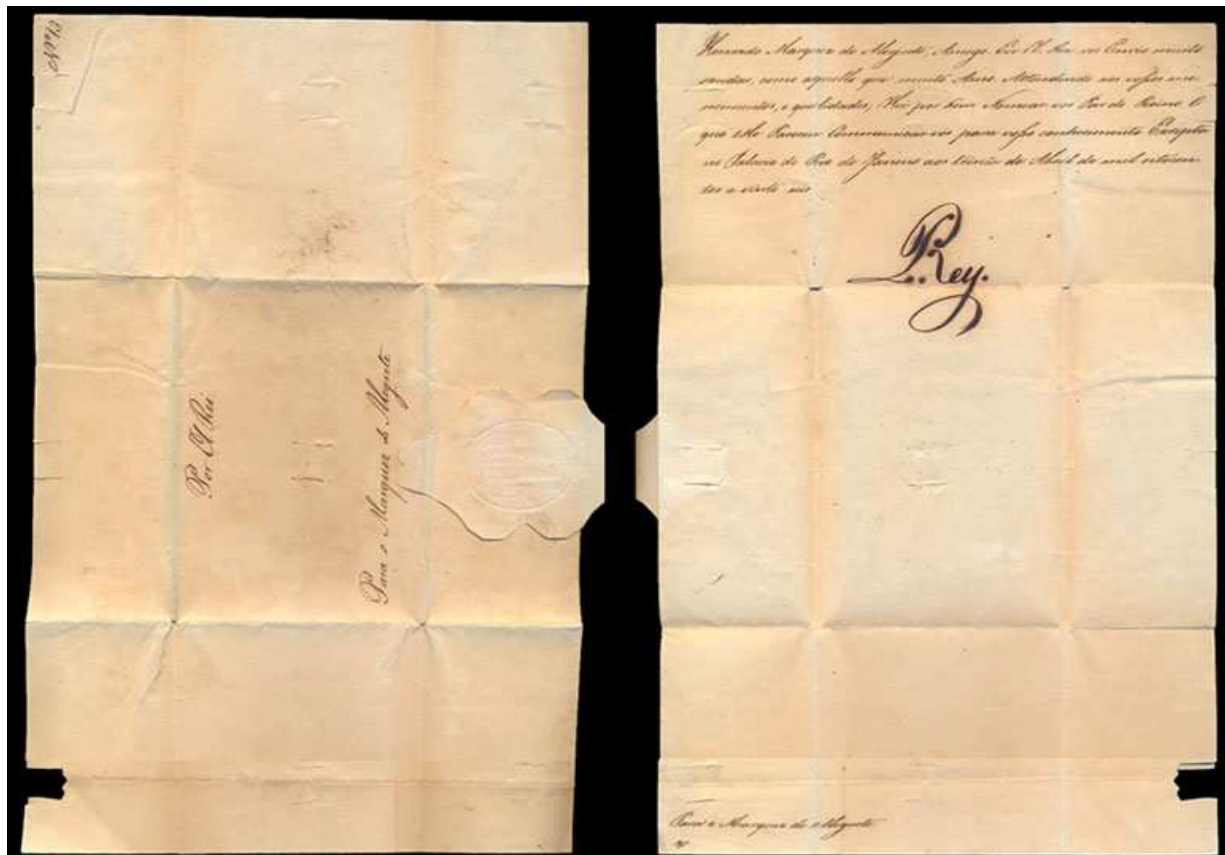 Nº 13
Por El Rei
Para o Marquez de Alegrete
Honrado Marquez de Alegrete, Amigo. Eu El Rei vos Envio muito
saudar, como aquelle que muito Amo. Attendendo aos vossos me-
recimentos, e qualidades, Hei por bem Nomear vos Par do Reino. O
que Me Pareceu Communicar vos para vosso conhecimento. Escripta
no Palacio do Rio de Janeiro aos trinta de Abril de mil oitocen-
tos e vinte seis
Rey.
Para o Marquez de Alegrete